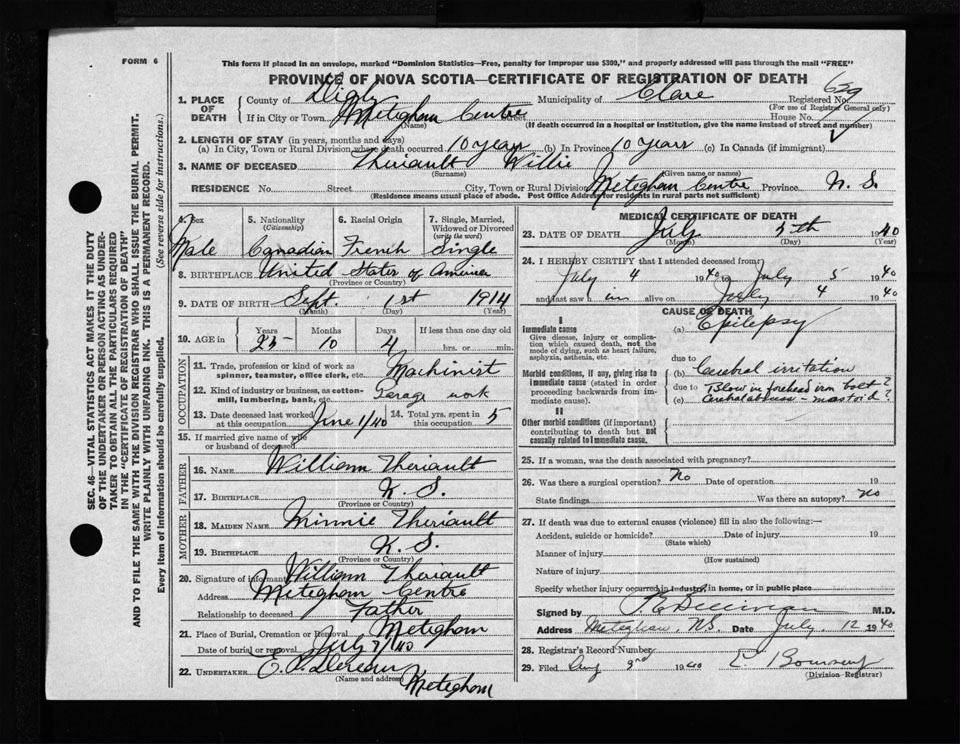 FORM 6
This form if placed in an envelope, marked "Dominion Statistics—Free, penalty for improper use $300," and properly addressed will pass through the mail "FREE"
PROVINCE OF NOVA SCOTIA—CERTIFICATE OF REGISTRATION OF DEATH
SEC. 46—VITAL STATISTICS ACT MAKES IT THE DUTY
OF THE UNDERTAKER OR PERSON ACTING AS UNDER-
TAKER TO OBTAIN ALL THE PARTICULARS REQUIRED
IN THE "CERTIFICATE OF REGISTRATION OF DEATH"
AND TO FILE THE SAME WITH THE DIVISION REGISTRAR WHO SHALL ISSUE THE BURIAL PERMIT.
WRITE PLAINLY WITH UNFADING INK. THIS IS A PERMANENT RECORD.
Every item of Information should be carefully supplied. (See reverse side for instructions.)
1. PLACE OF DEATH
County of Digby Municipality of Clare Registered No. 629
(For use of Registrar General only)
If in City or Town Meteghan Centre Street House No.
(Name) (If death occurred in a hospital or institution, give the name instead of street and number)
2. LENGTH OF STAY (in years, months and days)
(a) In City, Town or Rural Division where death occurred 10 years (b) In Province 10 years (c) In Canada (if immigrant)
3. NAME OF DECEASED Theriault Willie
(Surname) (Given name or names)
RESIDENCE No. Street City, Town or Rural Division Meteghan Centre Province N. S.
(Residence means usual place of abode. Post Office Address for residents in rural parts not sufficient)
4. Sex 5. Nationality (Citizenship) 6. Racial Origin 7. Single, Married, Widowed or Divorced (write the word)
Male Canadian French Single
8. BIRTHPLACE United States of America
(Province or Country)
9. DATE OF BIRTH Sept. 1st 1914
(Month) (Day) (Year)
10. AGE in Years Months Days If less than one day old
25 10 4 hrs. or min.
OCCUPATION
11. Trade, profession or kind of work as spinner, teamster, office clerk, etc. Machinist
12. Kind of industry or business, as cotton-mill, lumbering, bank, etc. Garage work
13. Date deceased last worked at this occupation June 1/40 14. Total yrs. spent in this occupation 5
15. If married give name of wife or husband of deceased
FATHER
16. NAME William Theriault
17. BIRTHPLACE N. S.
(Province or Country)
MOTHER
18. MAIDEN NAME Minnie Theriault
19. BIRTHPLACE N. S.
(Province or Country)
20. Signature of informant William Theriault
Address Meteghan Centre
Relationship to deceased Father
21. Place of Burial, Cremation or Removal Meteghan
Date of burial or removal July 7/40
22. UNDERTAKER
(Name and address)
Meteghan
MEDICAL CERTIFICATE OF DEATH
23. DATE OF DEATH July 5th 1940
(Month) (Day) (Year)
24. I HEREBY CERTIFY that I attended deceased from
July 4 1940 to July 5 1940
and last saw him alive on July 4 1940
CAUSE OF DEATH
I
Immediate cause (a) Epilepsy
Give disease, injury or complication which caused death, not the mode of dying, such as heart failure, asphyxia, asthenia, etc.
due to
Morbid conditions, if any, giving rise to immediate cause (stated in order proceeding backwards from immediate cause).
(b) Cerebral irritation
due to Blow in forehead iron bolt?
(c) Cerebral abscess - mastoid?
II
Other morbid conditions (if important) contributing to death but not causally related to immediate cause.
25. If a woman, was the death associated with pregnancy?
26. Was there a surgical operation? No Date of operation 19
State findings Was there an autopsy? no
27. If death was due to external causes (violence) fill in also the following:—
Accident, suicide or homicide? Date of injury 19
(State which)
Manner of injury
(How sustained)
Nature of injury
Specify whether injury occurred in industry, in home, or in public place
Signed by M.D.
Address Meteghan, N.S. Date July, 12 1940
28. Registrar's Record Number
29. Filed Aug 3rd 1940
(Division Registrar)